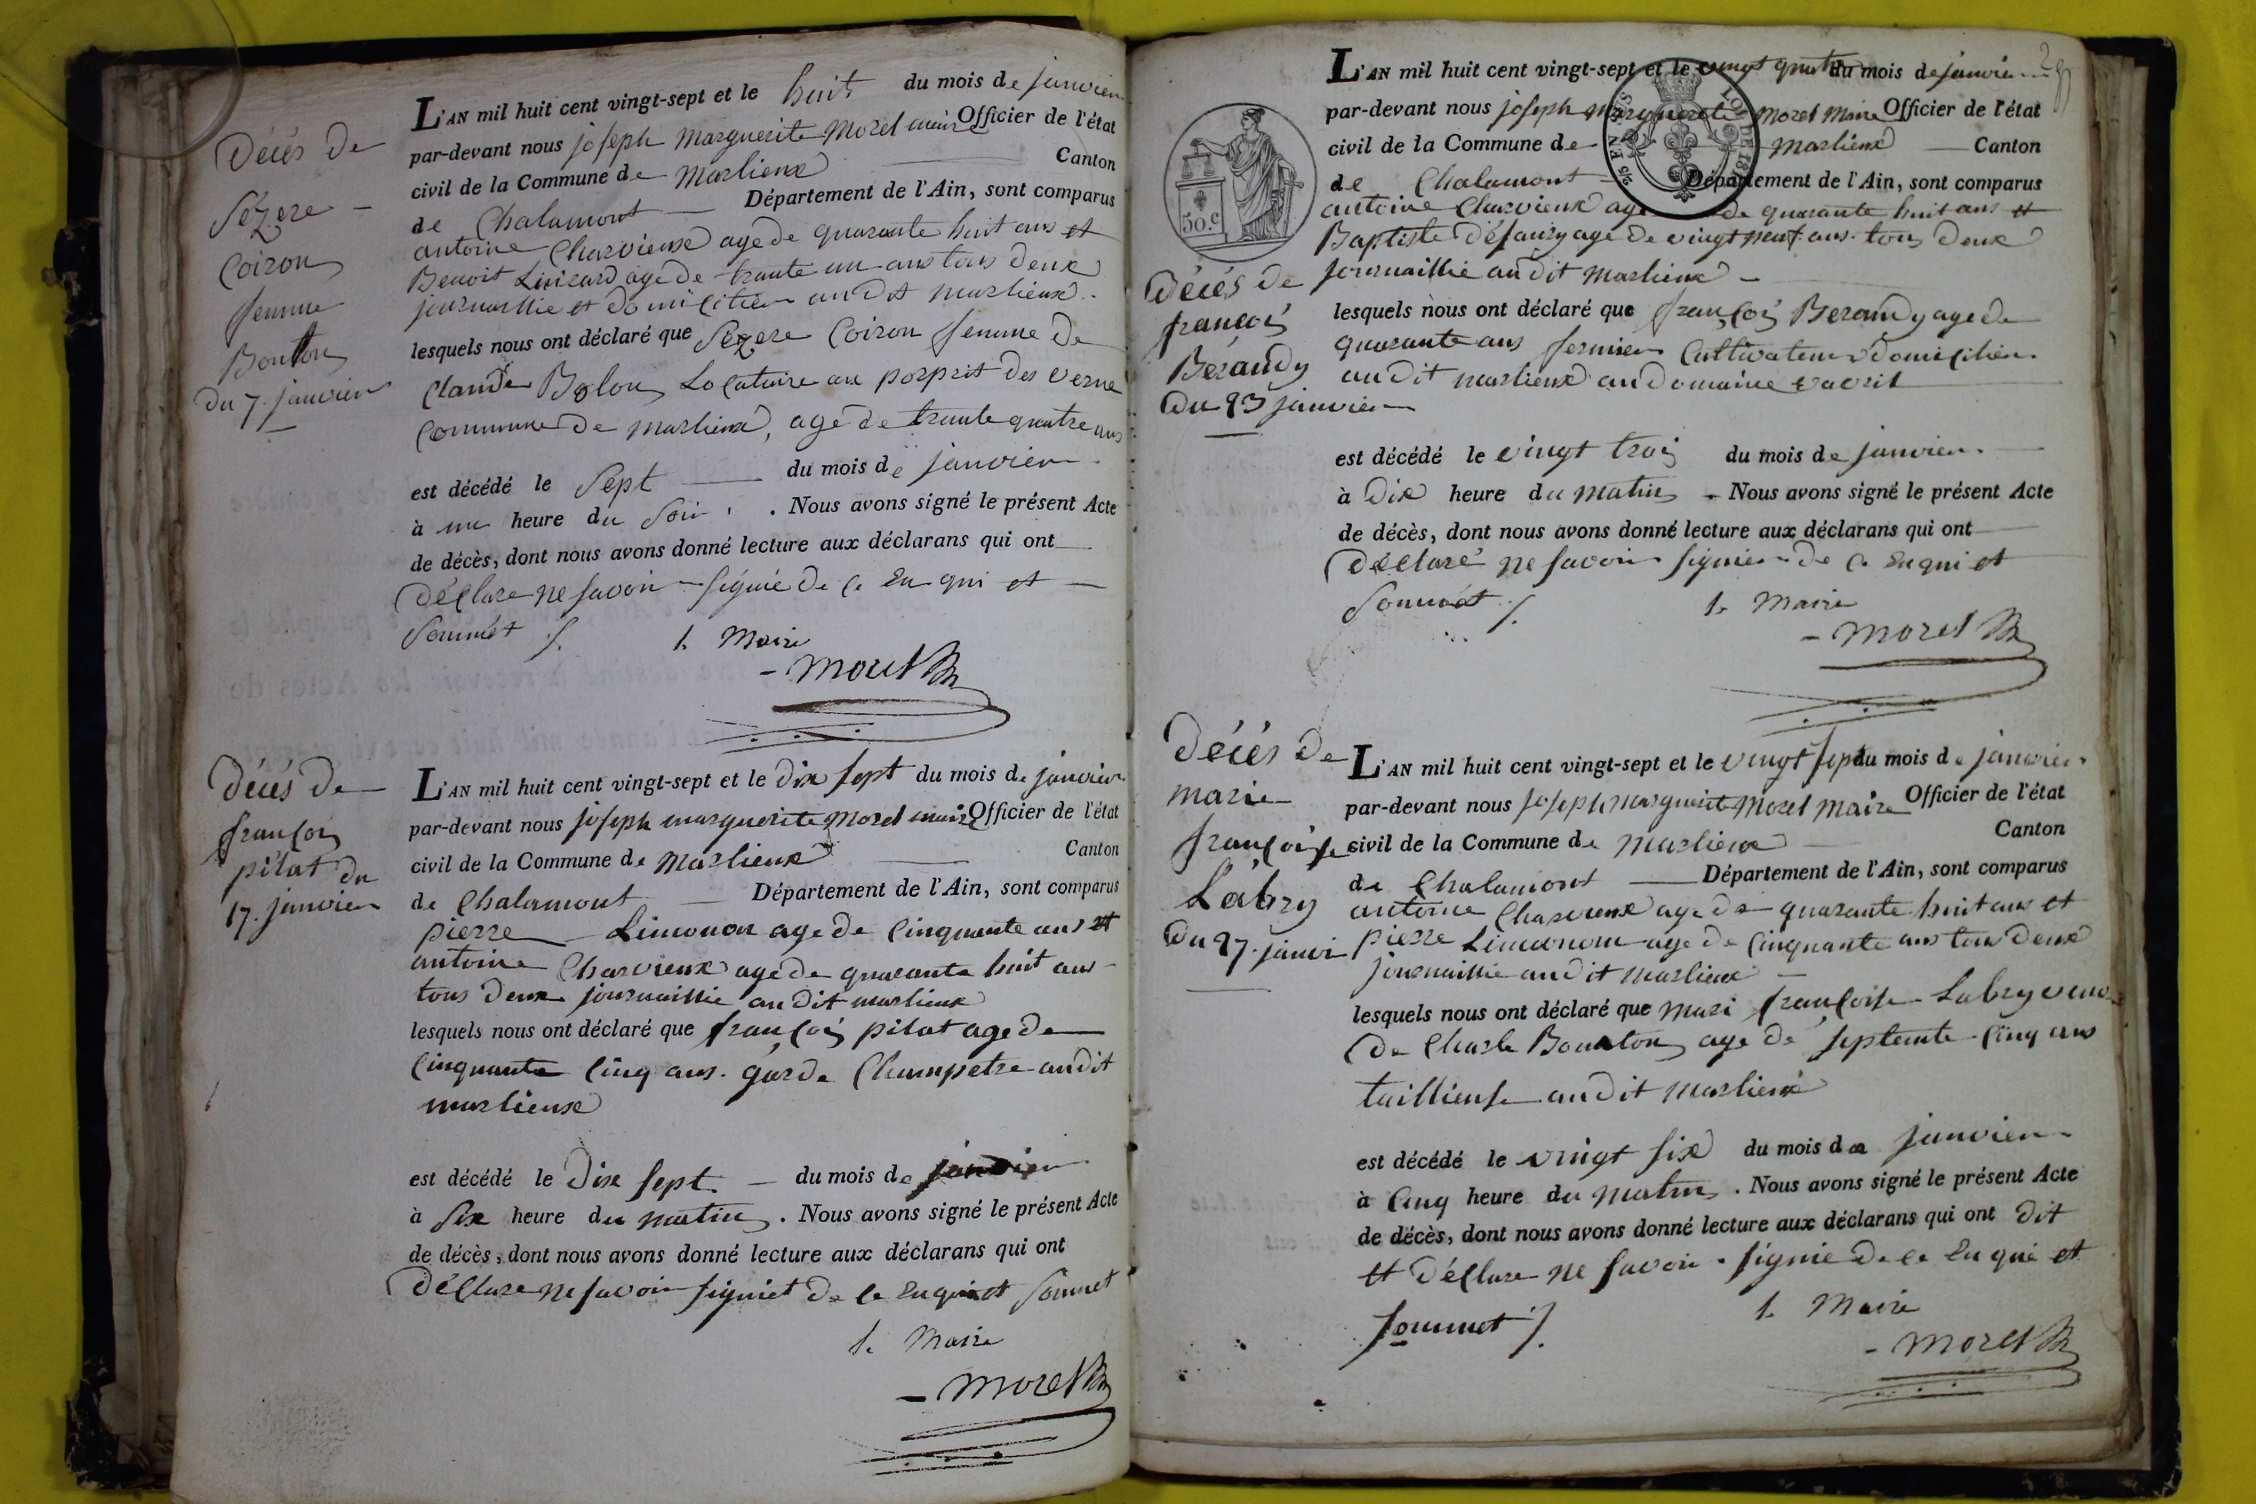 Décés de
Sézere
Coiron
femme
Bonton
du 7. janvier
L'AN mil huit cent vingt-sept et le huit du mois de janvier
par-devant nous joseph Marguerite Morel maire Officier de l'état
civil de la Commune de Marlieux Canton
de Chalamont Département de l'Ain, sont comparus
antoine Charvieux age de quarante huit ans et
Benoit age de trante un ans tous deux
journallie et domicilier au dit marlieux
lesquels nous ont déclaré que Sezere Coiron femme de
Claude Locataire au porprit des verne
Commune de marlieux, age de trante quatre ans
est décédé le sept du mois de janvier
à une heure du Soir. Nous avons signé le présent Acte
de décès, dont nous avons donné lecture aux déclarans qui ont
Déclare ne savoir signie de ce Enqui et
Sommet
le Maire
Morel
Décés de
françois
pilat du
17. janvier
L'AN mil huit cent vingt-sept et le dix sept du mois de janvier
par-devant nous joseph marguerite Morel maire Officier de l'état
civil de la Commune de Marlieux Canton
de Chalamont Département de l'Ain, sont comparus
pierre Limonon age de Cinquante ans et
antoine Charvieux age de quarante huit ans
tous deux journaillie au dit marlieux
lesquels nous ont déclaré que françois pilat age de
Cinquante Cinq ans. garde Champetre au dit
marlieux
est décédé le Dix sept du mois de janvier
à Six heure du matin. Nous avons signé le présent Acte
de décès, dont nous avons donné lecture aux déclarans qui ont
Déclare ne savoir signiet de ce Enqui et Sommet
le Maire
Morel
50.c
Décés de
françois
Beraudy
Du 23 janvier
L'AN mil huit cent vingt-sept et le vingt quatre du mois de janvier
par-devant nous joseph marguerite Morel Maire Officier de l'état
civil de la Commune de Marlieux Canton
de Chalamont Département de l'Ain, sont comparus
antoine Charvieux age de quarante huit ans et
Baptiste age de vingt neuf ans tous deux
journaillie au dit marlieux
lesquels nous ont déclaré que françois Beraudy age de
quarante ans fermier Cultivateur domicilier
au dit marlieux au domaine
est décédé le vingt trois du mois de janvier
à Dix heure du matin. Nous avons signé le présent Acte
de décès, dont nous avons donné lecture aux déclarans qui ont
Déclaré ne savoir signier de ce Enqui et
Sommet
le Maire
Morel
Décés de
marie
françoise
Labry
Du 27. janvi
L'AN mil huit cent vingt-sept et le vingt sept du mois de janvier
par-devant nous joseph marguerite Morel Maire Officier de l'état
civil de la Commune de Marlieux Canton
de Chalamont Département de l'Ain, sont comparus
antoine Charvieux age de quarante huit ans et
pierre Limonon age de Cinquante ans tous deux
journaillie au dit marlieux
lesquels nous ont déclaré que mari françoise Labry veuve
de Charle Bonton age de septente Cinq ans
taillieuse au dit marlieux
est décédé le vingt six du mois de janvier
à Cinq heure du matin. Nous avons signé le présent Acte
de décès, dont nous avons donné lecture aux déclarans qui ont dit
et déclare ne savoir signie de ce Enqui et
sommet
le Maire
Morel